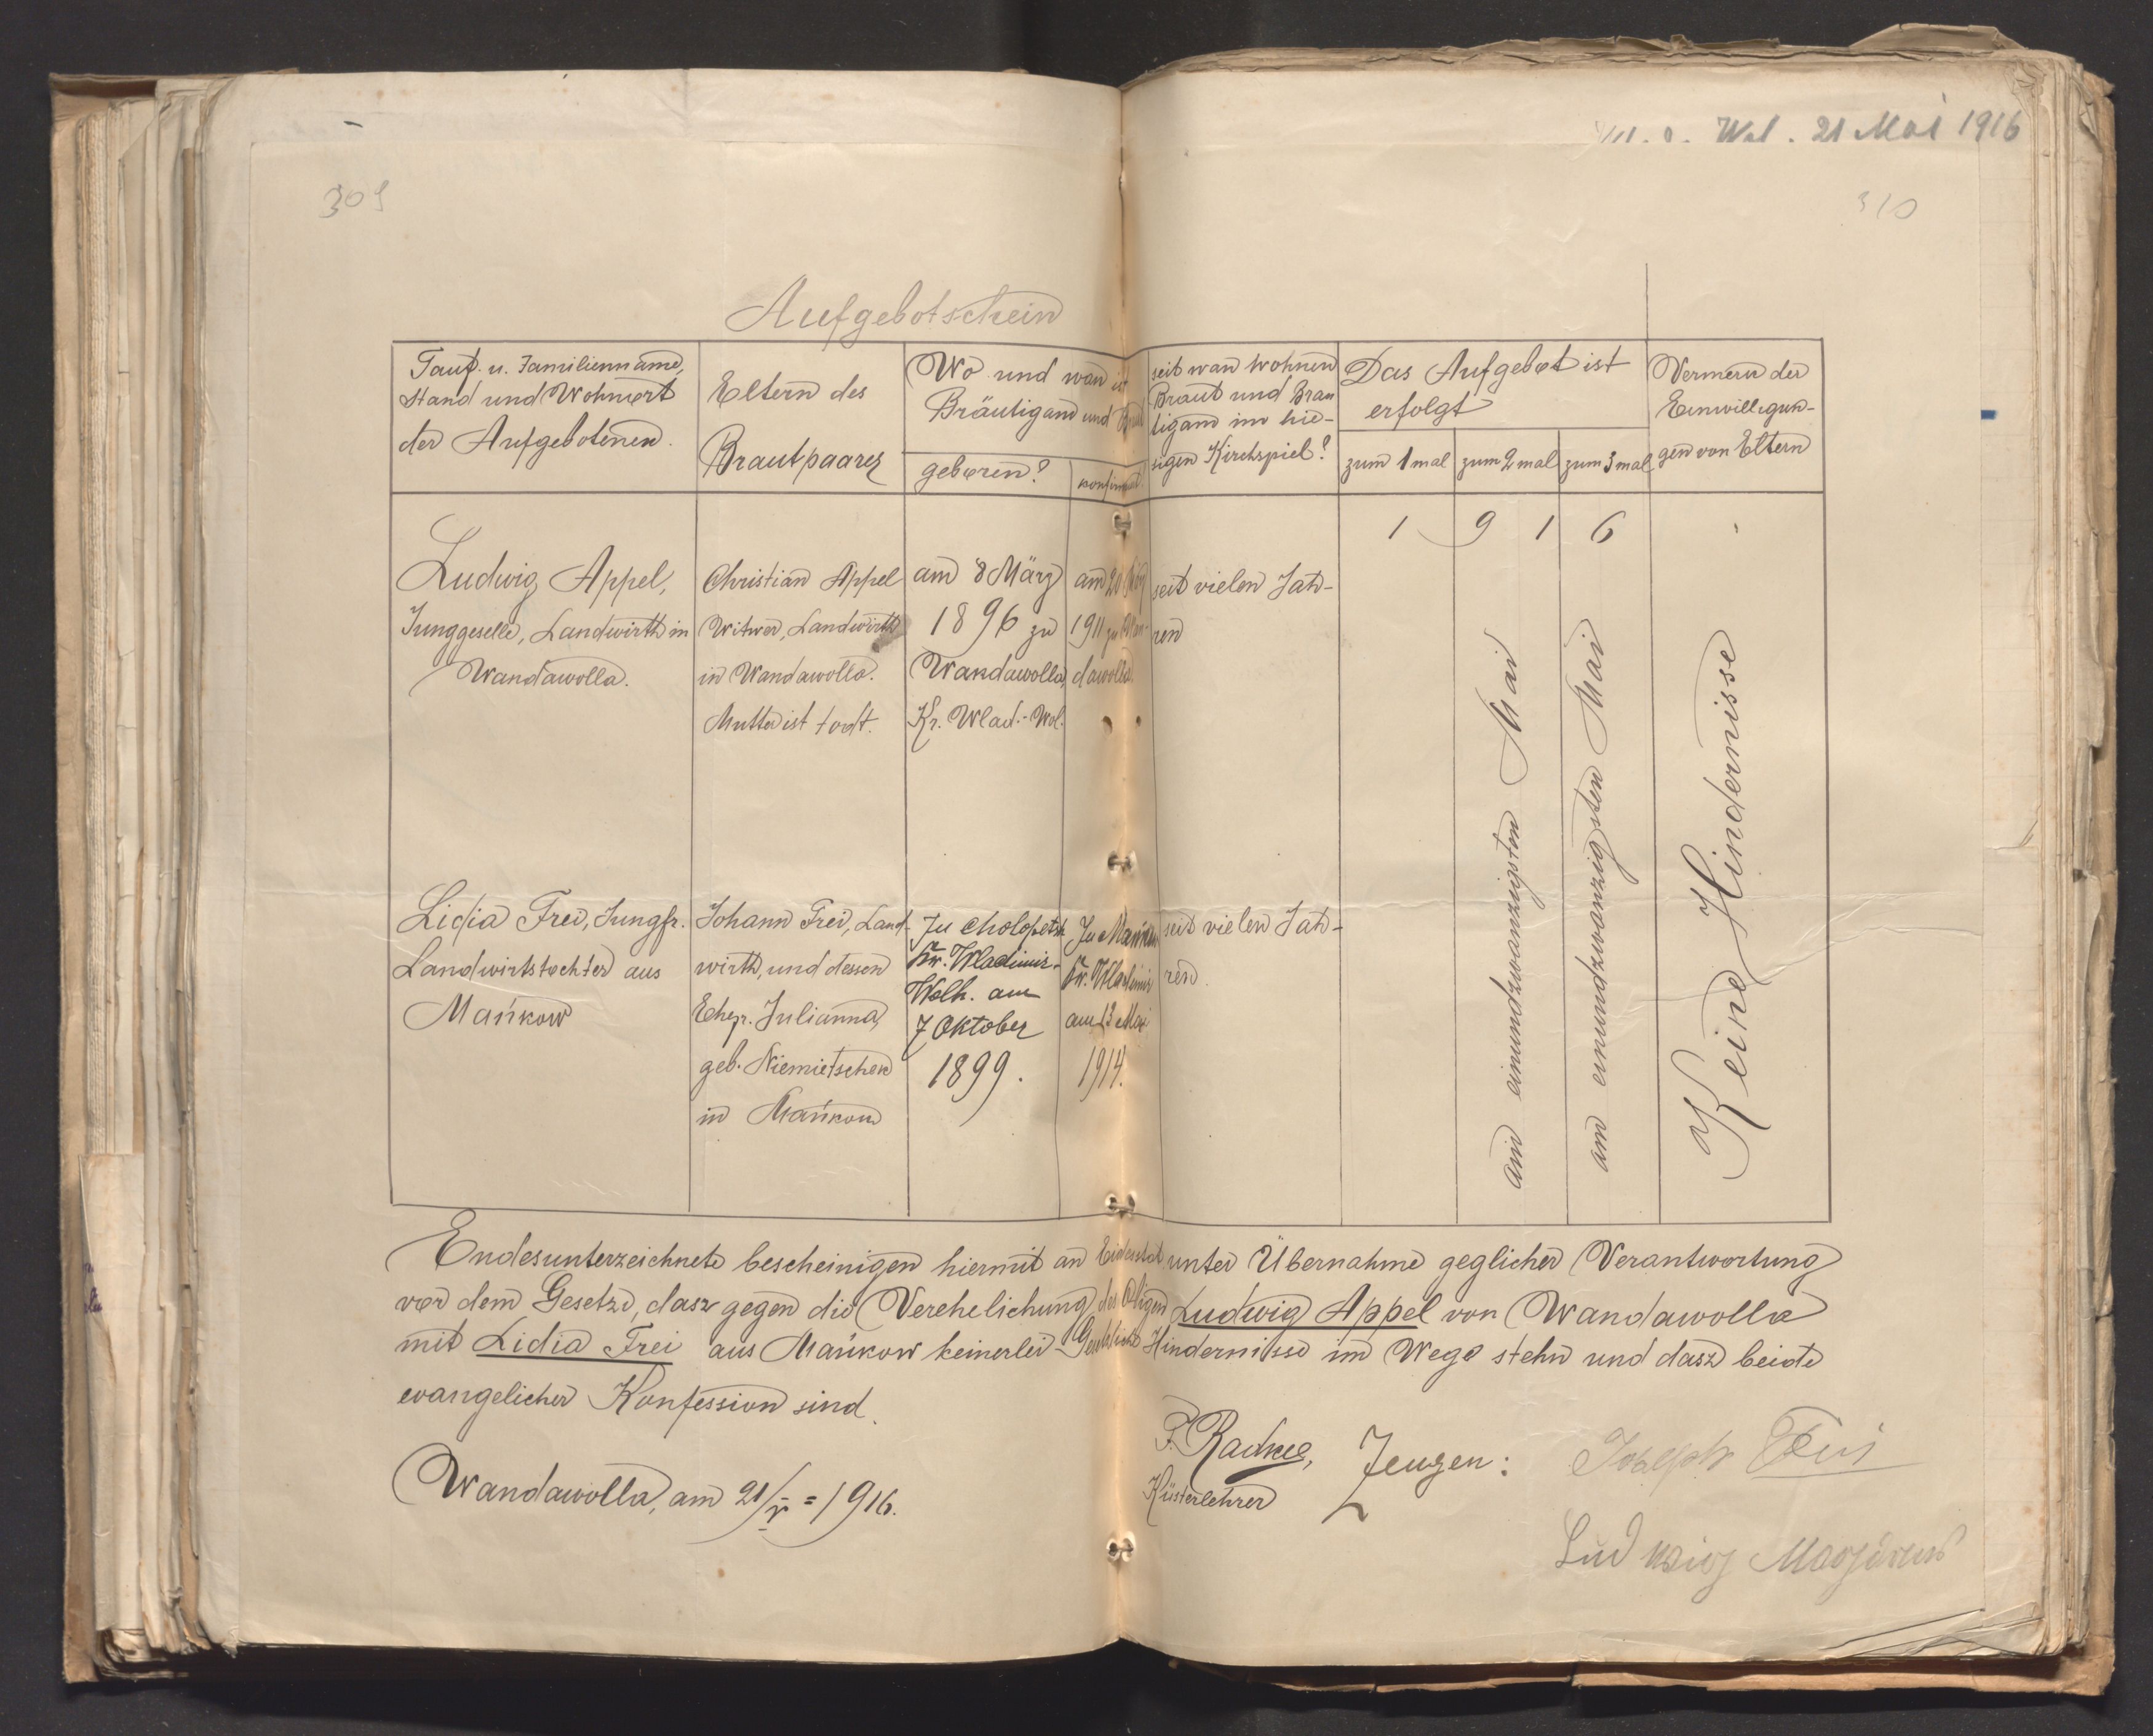 Wol. 21 Mai 1916
309
310
Aufgebotschein
Tauf- u. Familienname,
Stand und Wohnort
der Aufgebotenen.
Eltern des
Brautpaares
Wo und wan ist
Bräutigam und Braut
geboren?
konfirmiert?
seit wan wohnen
Braut und Bräu
tigam im hie-
sigen Kirchspiel?
Das Aufgebot ist
erfolgt
zum 1 mal
zum 2 mal
zum 3 mal
Vermerk der
Einwilligun-
gen von Eltern
1916
Ludwig Appel,
Junggeselle, Landwirth in
Wandawolla.
Christian Appel
Witwer, Landwirth
in Wandawolla.
Mutter ist todt.
am 8 März
1896 zu
Wandawolla,
Kr. Wlad.-Wol.
am 20
1911 zu Wan-
dawolla.
seit vielen Jah-
ren
am einundzwanzigsten Mai
am einundzwanzigsten Mai
Keine Hindernisse
Lidia Frei, Jungfr.
Landwirtstochter aus
Mańkow
Johann Frei, Land-
wirth, und dessen
Ehefr. Julianna,
geb. Niemietschek
in Mańkow
Zu Cholopetsch
Kr. Wladimir-
Wolh. am
7 Oktober
1899.
Zu Mańkow
Kr. Wladimir
am 13 Mai
1914.
seit vielen Jah-
ren.
Endesunterzeichnete bescheinigen hiermit an Eidesstat unter Übernahme geglicher Verantwortung
vor dem Gesetze, dasz gegen die Verehelichung des Obigen Ludwig Appel von Wandawolla
mit Lidia Frei aus Mańkow keinerlei Hindernisse im Wege stehn und dasz beide
evangelicher Konfession sind.
Wandawolla, am 21/V = 1916.
Küsterlehrer
Zeugen:
Ludwig